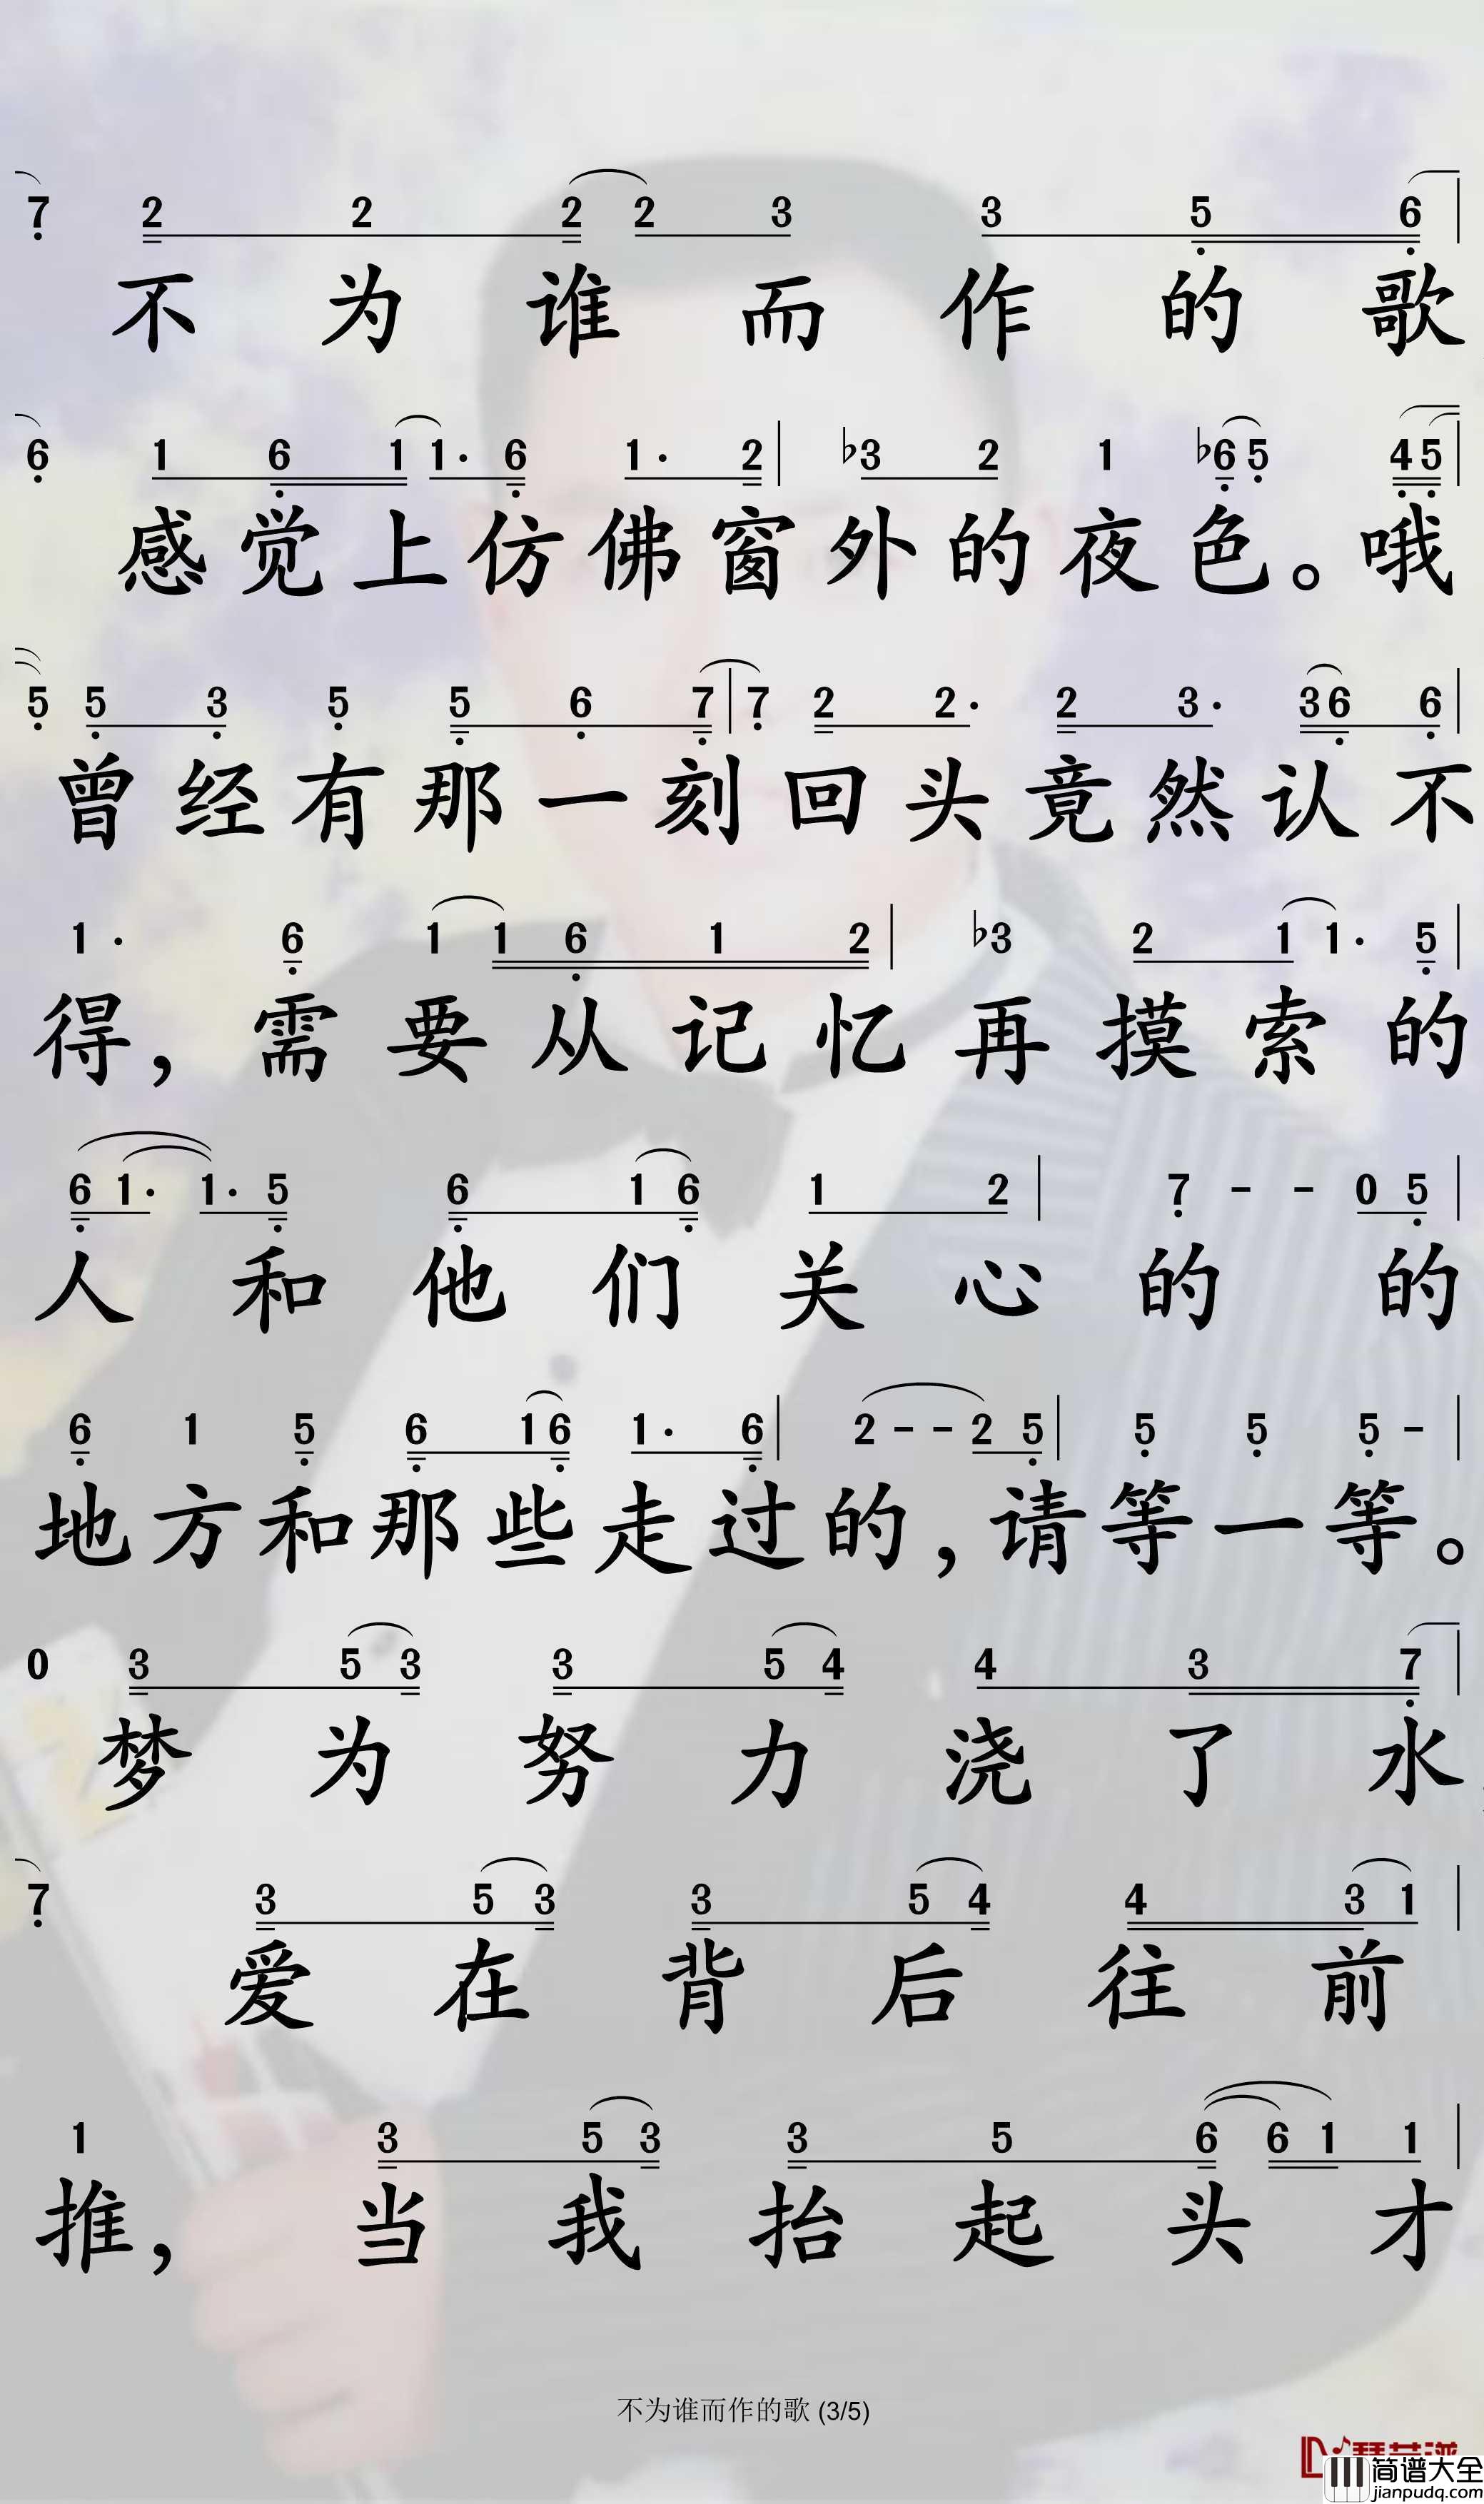 7 2 2 2 2 3 3 5 6
不为谁而作的歌
6 1 6 1 1· 6 1· 2 | ♭3 2 1 ♭6 5 4 5 |
感觉上仿佛窗外的夜色。哦
5 5 3 5 5 6 7 | 7 2 2· 2 3· 3 6 6 |
曾经有那一刻回头竟然认不
1· 6 1 1 6 1 2 | ♭3 2 1 1· 5 |
得，需要从记忆再摸索的
6 1· 1· 5 6 1 6 1 2 | 7 - - 0 5 |
人和他们关心的的
6 1 5 6 1 6 1· 6 | 2 - - 2 5 | 5 5 5 - |
地方和那些走过的，请等一等。
0 3 5 3 3 5 4 4 3 7 |
梦为努力浇了水
7 3 5 3 3 5 4 4 3 1 |
爱在背后往前
1 3 5 3 3 5 6 6 1 1 |
推，当我抬起头才
不为谁而作的歌 (3/5)
简谱大全
jianpudq.com